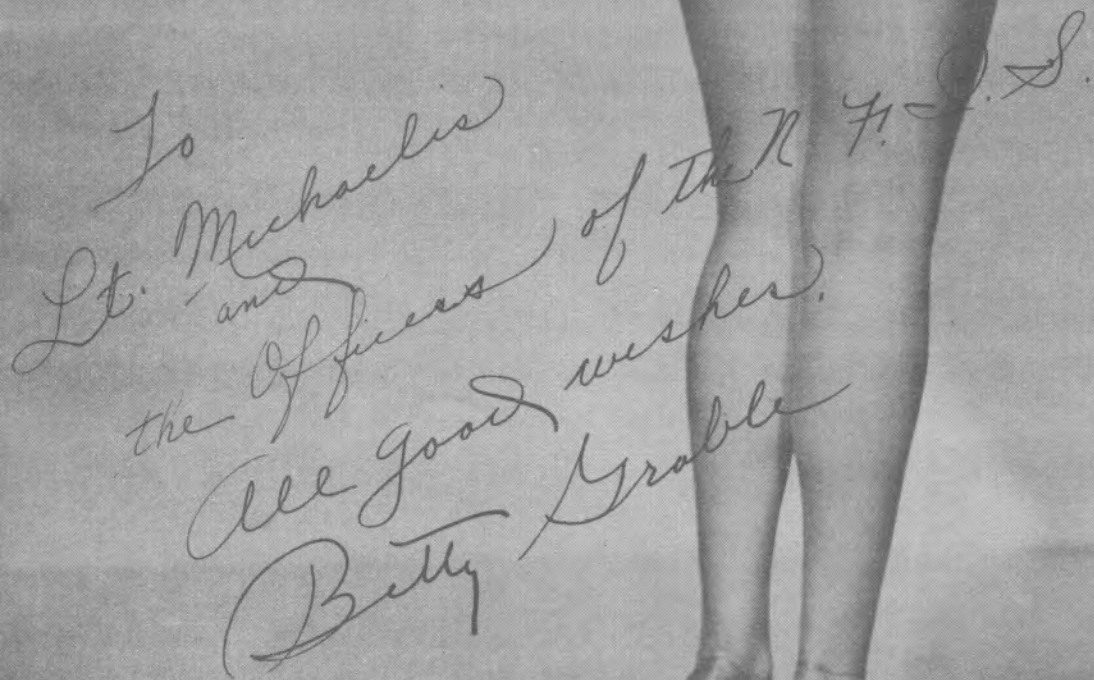 To
Lt. Michaelis
and
the Officers of the N.F.I.S.
All good wishes.
Betty Grable